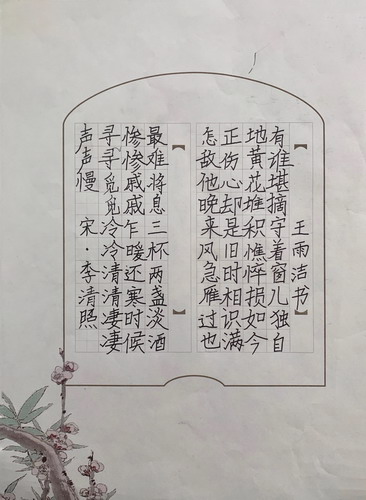 声声慢 宋·李清照
寻寻觅觅冷冷清清凄凄
惨惨戚戚乍暖还寒时候
最难将息三杯两盏淡酒
怎敌他晚来风急雁过也
正伤心却是旧时相识满
地黄花堆积憔悴损如今
有谁堪摘守着窗儿独自
王雨洁书